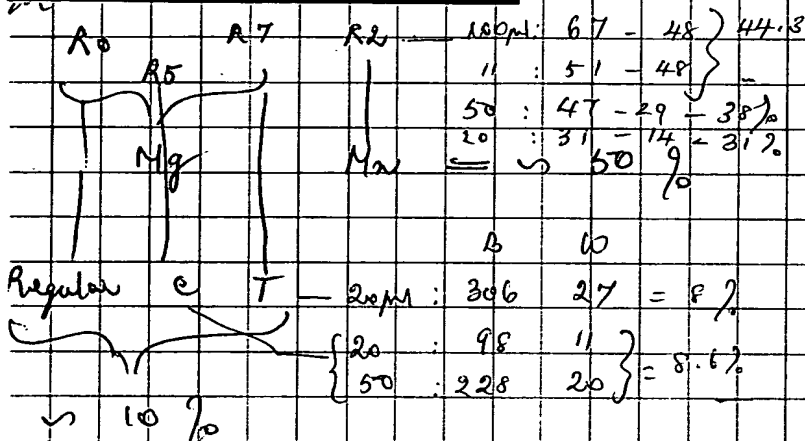 R0 R7 R2 — 100µl: 67 - 48 } 44.3
R5 11 : 51 - 48
50 : 47 - 29 - 38%
20 : 31 - 14 - 31%
Mg Mn ~ 50 %
B W
Regular C T — 20µl : 306 27 = 8%
20 : 98 11
50 : 228 20 } = 8.6%
~ 10 %